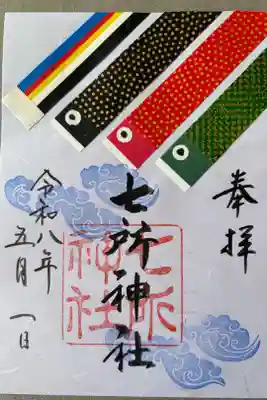 奉拝
七所神社
七所
神社
令和八年
五月一日